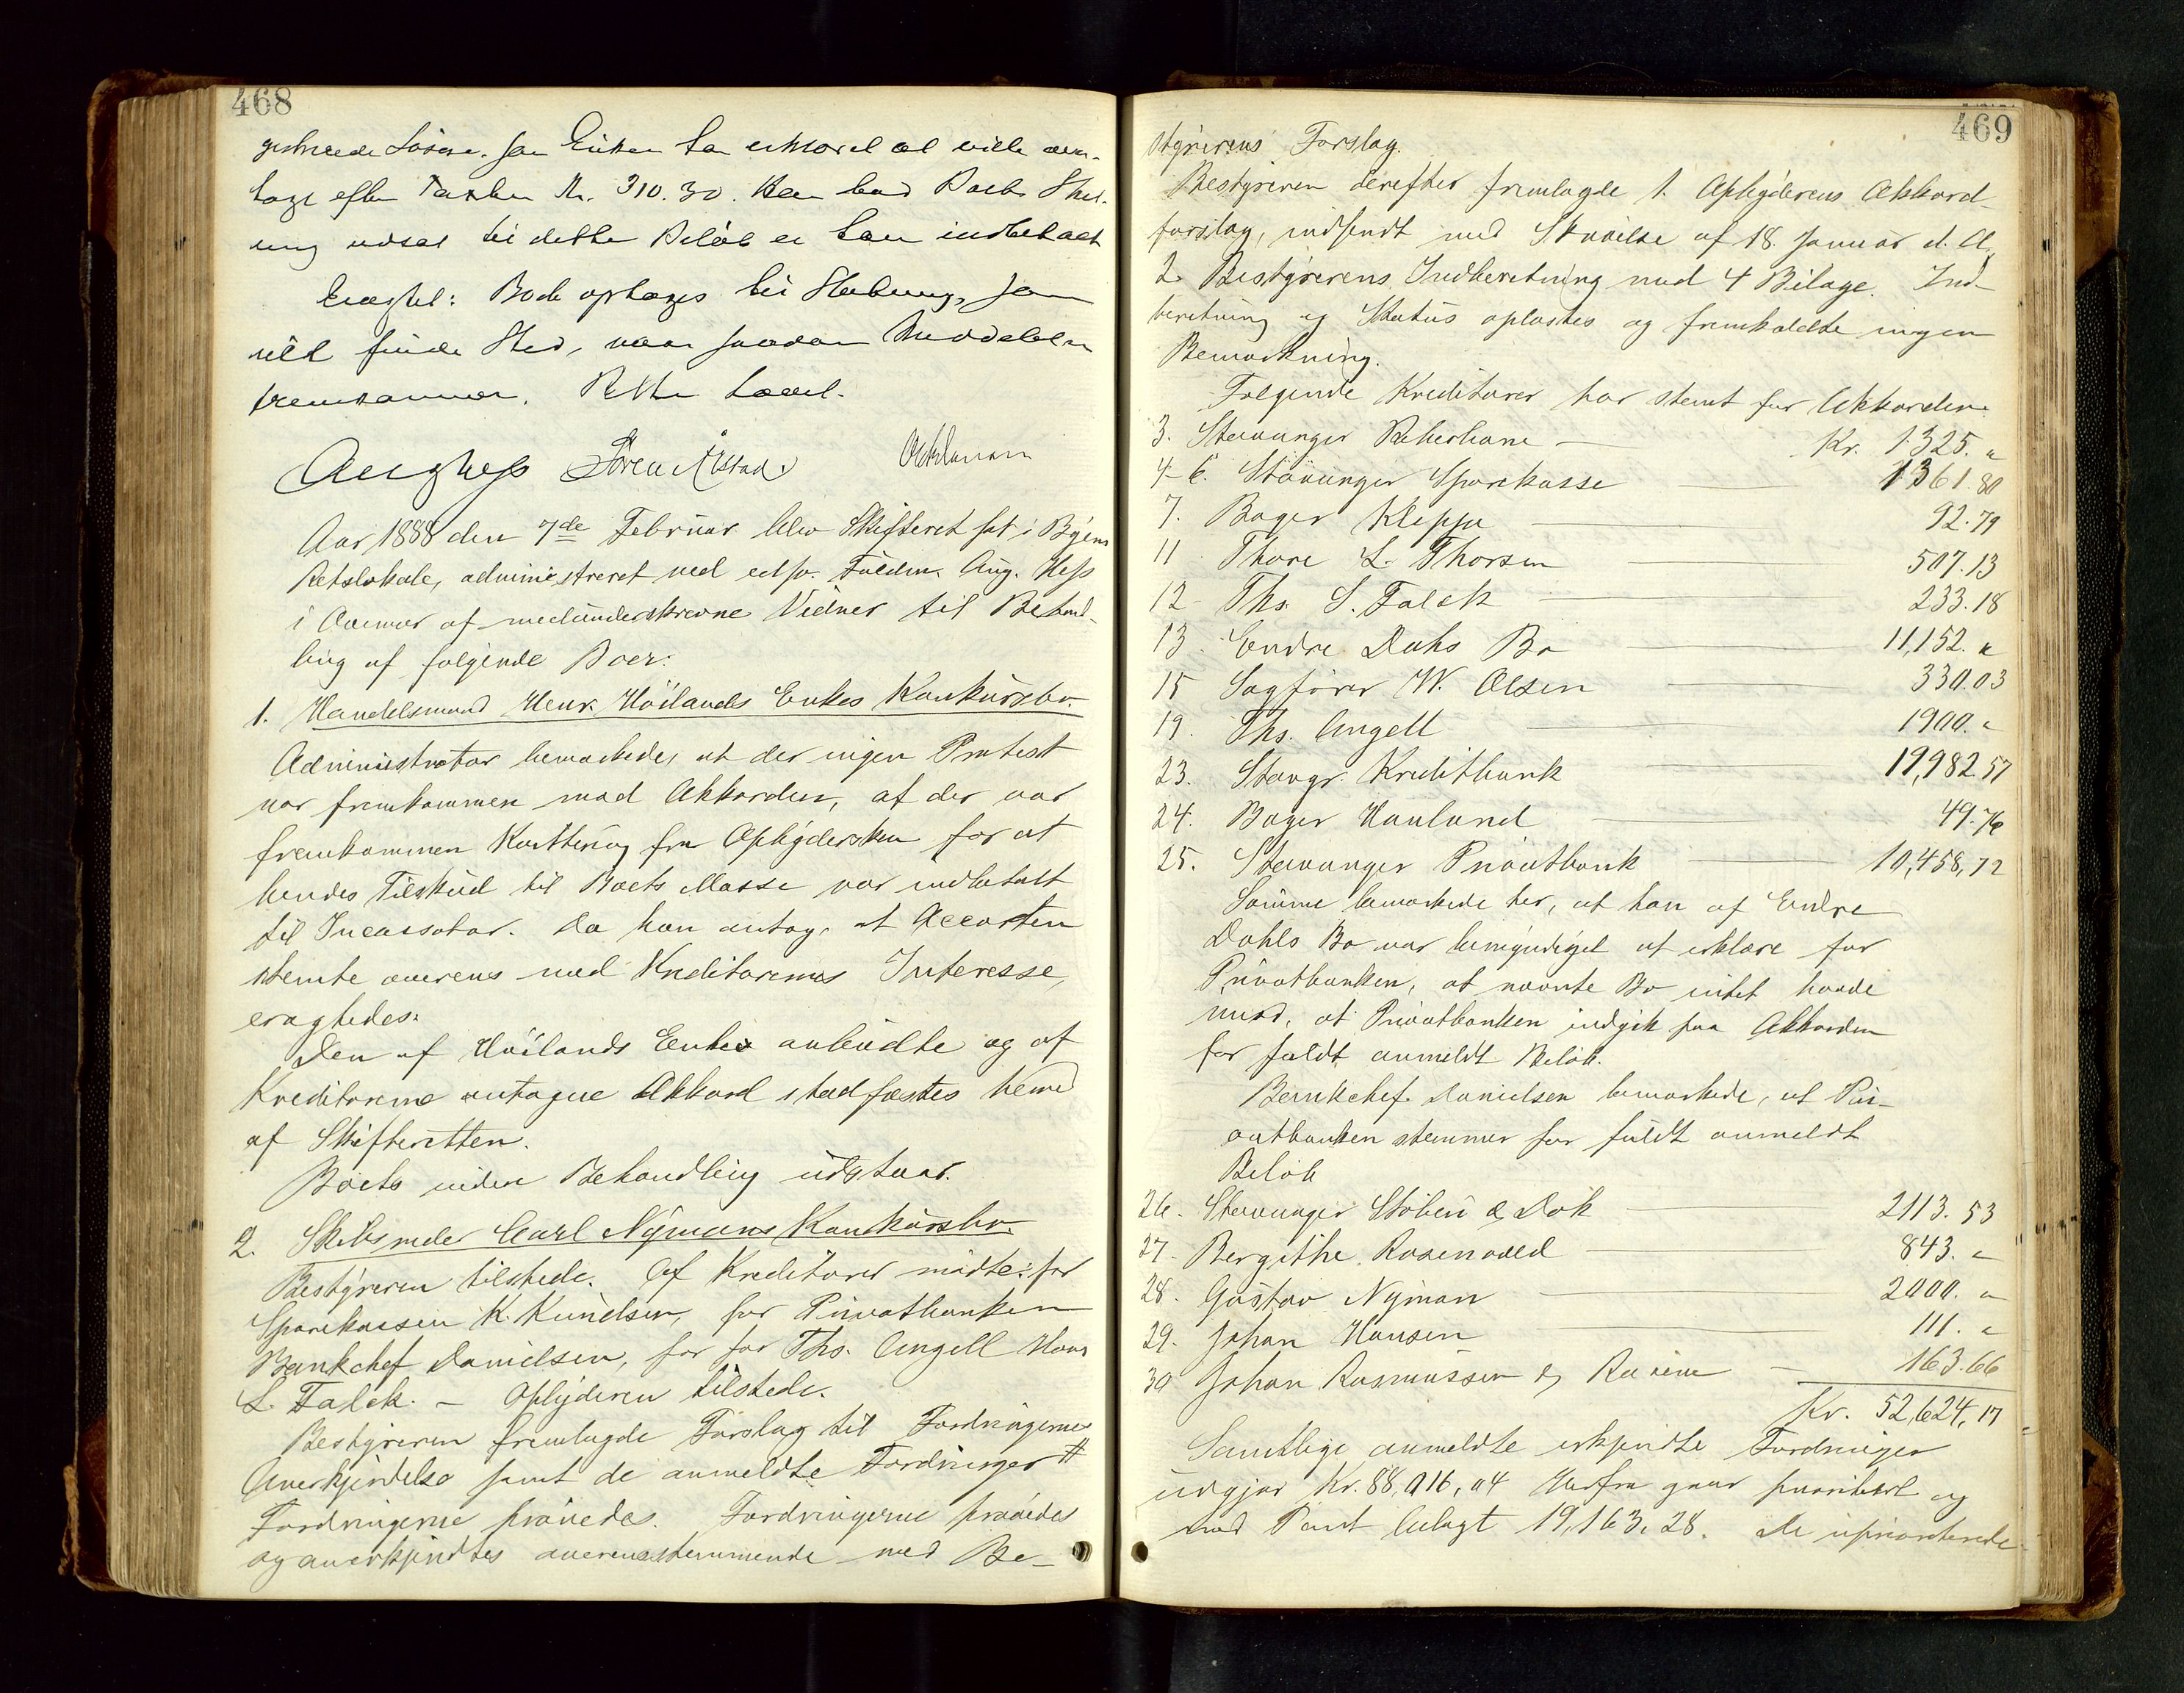 468
Løsøre, som Enken har erklæret at ville over-
tage efter Taxten Kr. 310.30. Han bad Boets Slut-
ning udsat til dette Beløb er indbetalt
Eragtet: Boet optages til Slutning, som
vil finde Sted, naar saadan Meddelelse
fremkommer. Retten hævet.
Aug Hess Sören Alstad
Aar 1888 den 7de Februar blev Skifteret sat i Byens
Retslokale, administreret ved edsv. Fuldm. Aug. Hess
i Nærvær af medunderskrevne Vidner til Behand-
ling af følgende Boer:
1. Handelsmand Henr. Höilands Enkes Konkursbo.
Administrator bemærkede, at der ingen Protest
var fremkommen mod Akkorden, at der var
fremkommen Kvittering fra Opbydersken for at
hendes Tilskud til Boets Masse var indbetalt
til Incassator. Da han antog, at Accorden
stemte overens med Kreditorernes Interesse,
eragtedes:
Den af Höilands Enke anbudte og af
Kreditorerne antagne Akkord stadfæstes herved
af Skifteretten.
Boets videre Behandling udstaar.
2. Skibsreder Carl Nymans Konkursbo.
Bestyreren tilstede. Af Kreditorer mødte: for
Sparekassen K. Knudsen, for Privatbanken
Bankchef Danielsen, for for Ths. Angell Hans
L. Falck. — Opbyderen tilstede.
Bestyreren fremlagde Forslag til Fordringernes
Anerkjendelse samt de anmeldte Fordringer #
Fordringerne prøvedes. Fordringerne prøvedes
og anerkjendtes overensstemmende med Be-
469
styrerens Forslag.
Bestyreren derefter fremlagde 1. Opbyderens Akkord-
forslag, indsendt med Skrivelse af 18. Januar d. A.
2. Bestyrerens Indberetning med 4 Bilage. Ind-
beretning og Status oplæstes og fremkaldte ingen
Bemærkning.
Følgende Kreditorer har stemt for Akkorden:
3. Stavanger Reberbane — Kr. 1325. "
4-6. Stavanger Sparekasse — 1361.80
7. Bager Kleppe — 92.79
11 Thore L. Thorsen — 507.13
12 Ths. S. Falck — 233.18
13. Endre Dahls Bo — 11,152. "
15 Sagfører W. Olsen — 330.03
19. Ths. Angell — 1900. "
23. Stavgr. Kreditbank — 19,982.57
24. Bager Hauland — 49.76
25. Stavanger Privatbank — 10,458,72
Sømme bemærkede her, at han af Endre
Dahls Bo var bemyndiget at erklære for
Privatbanken, at nævnte Bo intet havde
imod, at Privatbanken indgik paa Akkorden
for fuldt anmeldt Beløb.
Bankchef Danielsen bemærkede, at Pri-
vatbanken stemmer for fuldt anmeldt
Beløb
26. Stavanger Støberi & Dok — 2113.53
27. Bergithe Rosenvold — 843. "
28. Gustav Nyman — 2000. "
29. Johan Hansen — 111. "
30 Johan Rasmussen & — 163.66
Kr. 52,624,17
Samtlige anmeldte erkjendte Fordringer
udgjør Kr. 88,016,04 Herfra gaar prioritert og
mod Pant belagt 19,163.28. De uprioriterede